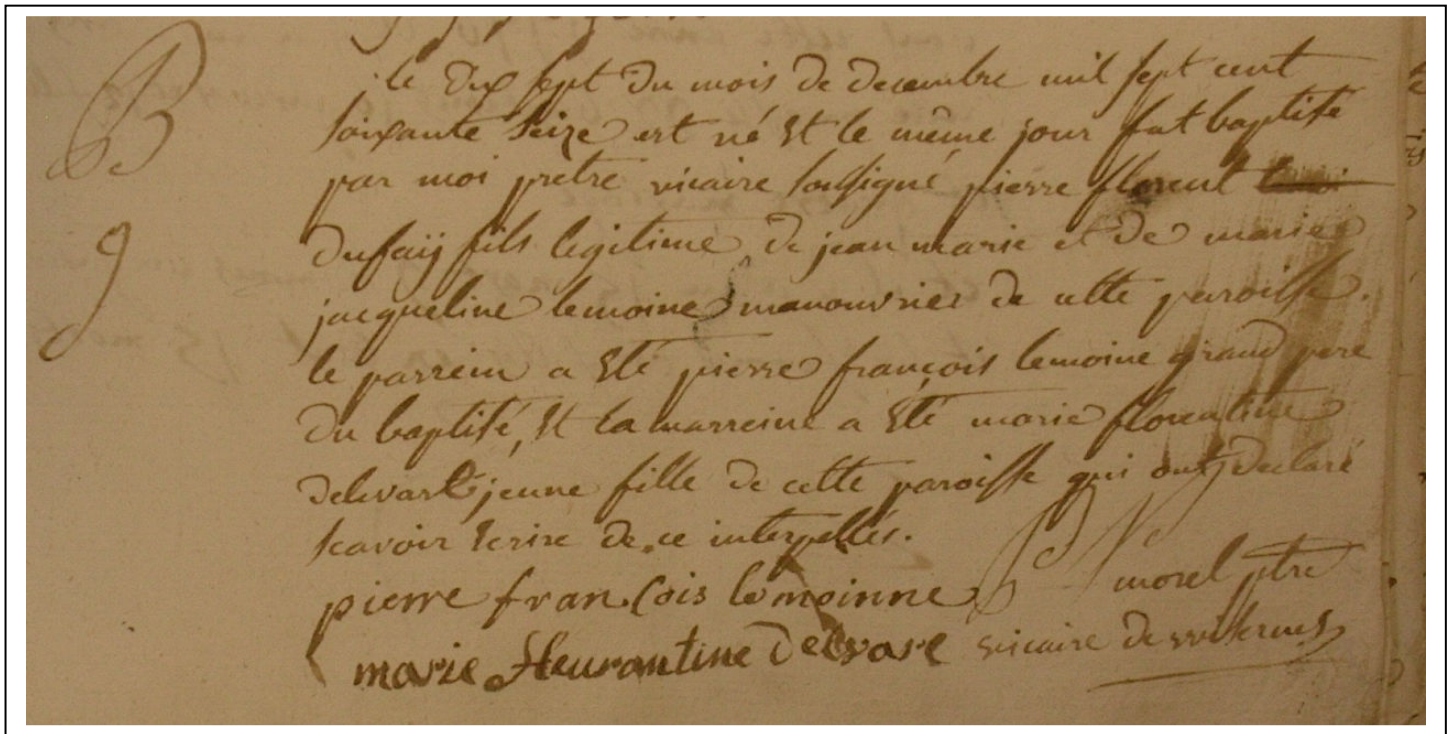 B
9
le dix sept du mois de decembre mil sept cent
soixante seize est né et le même jour fut baptisé
par moi prêtre vicaire soussigné pierre florent
dufaÿ fils legitime de jean marie et de marie
jacqueline lemoine manouvrier de cette paroisse.
le parrein a été pierre françois lemoine grand pere
du baptisé, et la marreine a été marie florentine
delevart jeune fille de cette paroisse qui ont declaré
scavoir ecrire de ce interpellés.
pierre francois lemoinne morel ptre
marie fleurantine vicaire de